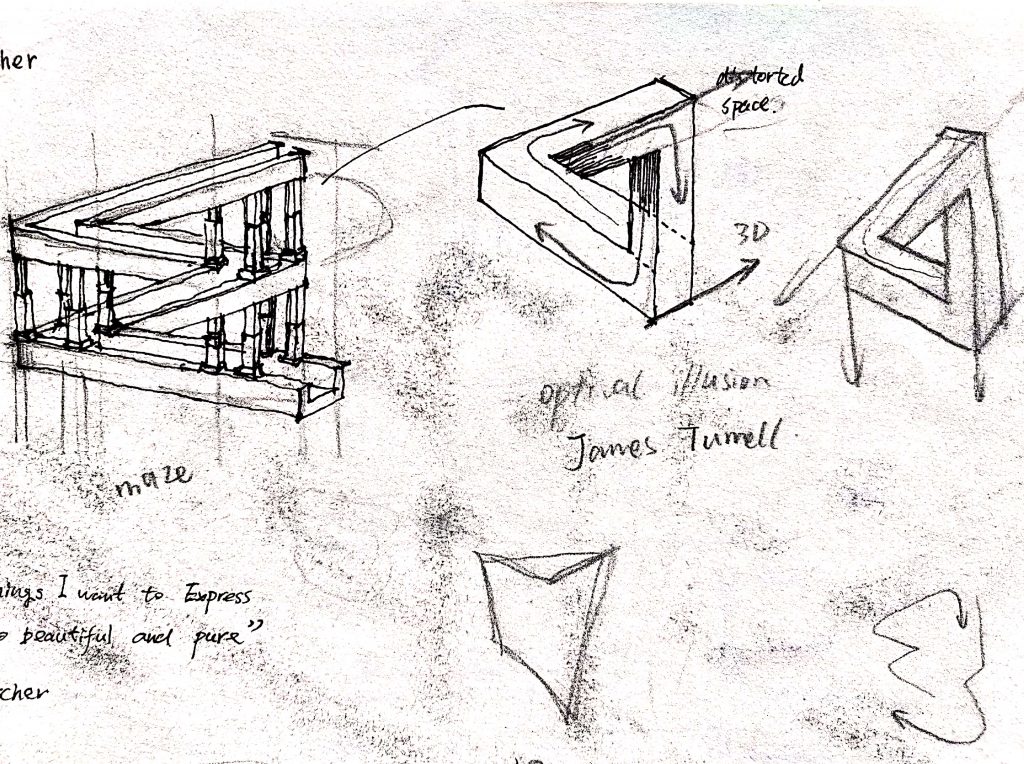 her
distorted
space.
3D
optical illusion
James Turrell.
maze
I want to Express
beautiful and pure"
cher